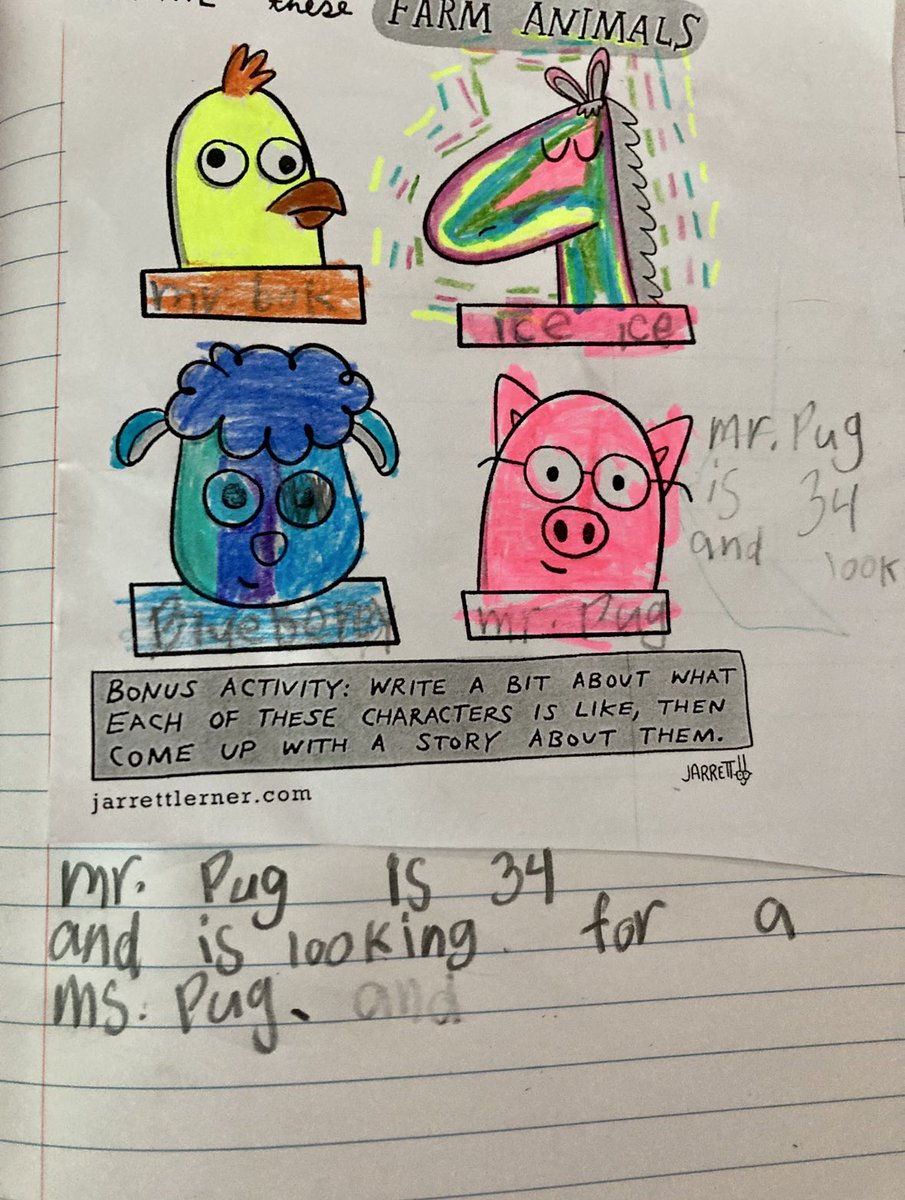 these FARM ANIMALS
mr. bok
ice ice
Blueborey
mr. Pug
mr. Pug
is 34
and look
BONUS ACTIVITY: WRITE A BIT ABOUT WHAT
EACH OF THESE CHARACTERS IS LIKE, THEN
COME UP WITH A STORY ABOUT THEM.
JARRETT
jarrettlerner.com
mr. Pug is 34
and is looking for a
ms. Pug. and